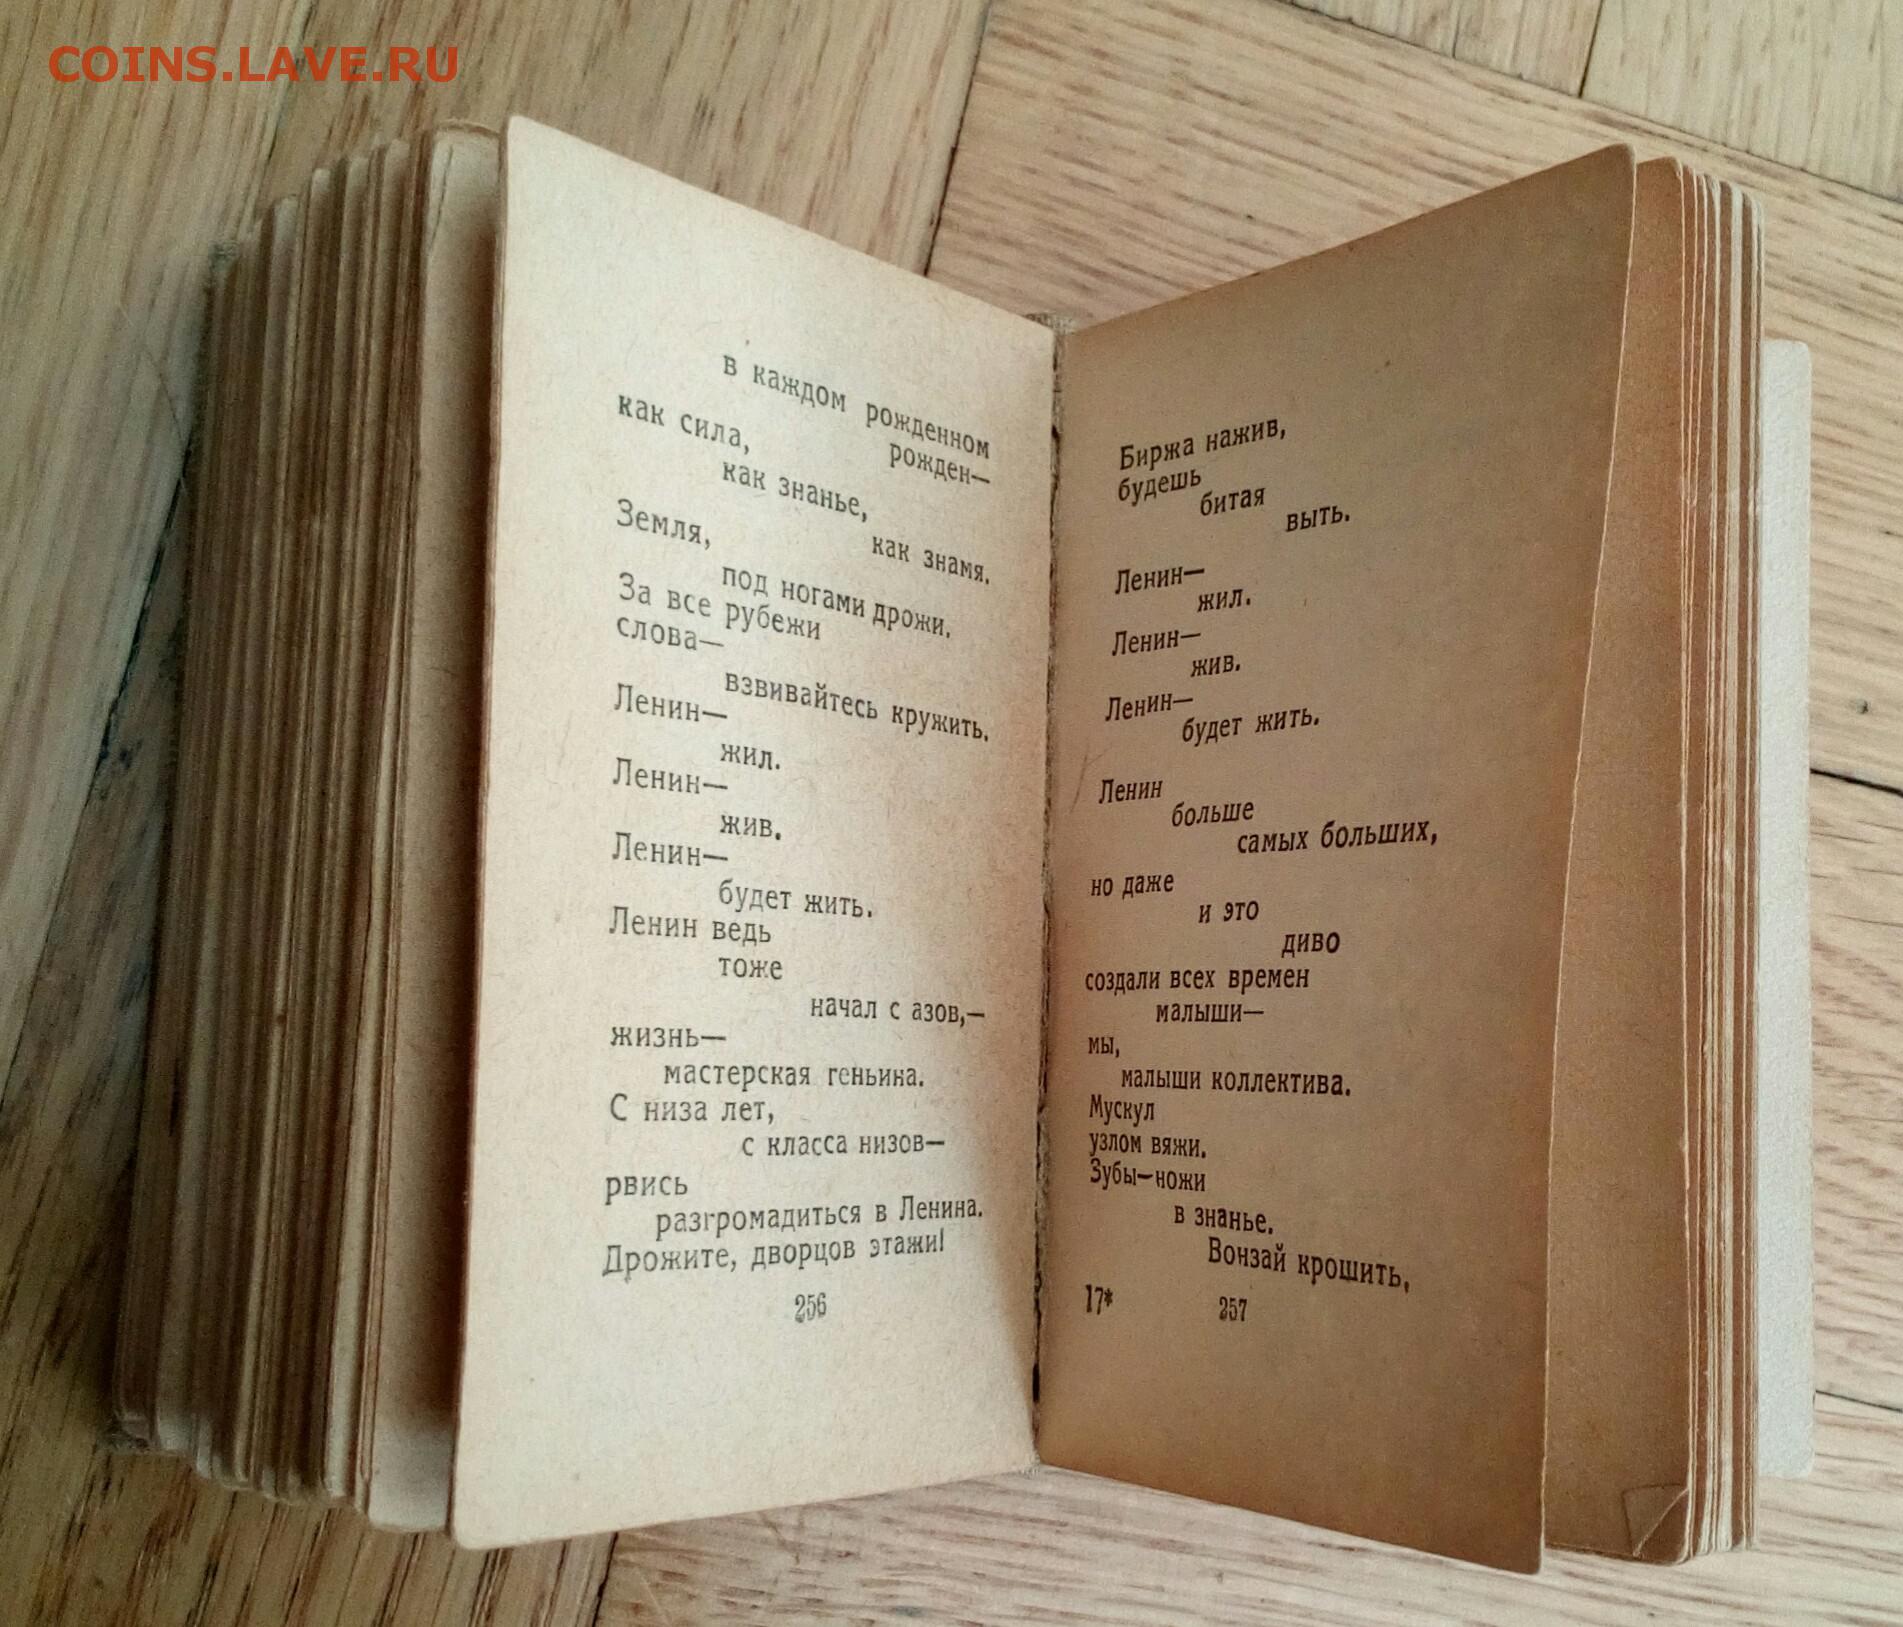 COINS.LAVE.RU
в каждом рожденном
рожден—
как сила,
как знанье,
как знамя.
Земля,
под ногами дрожи.
За все рубежи
слова—
взвивайтесь кружить.
Ленин—
жил.
Ленин—
жив.
Ленин—
будет жить.
Ленин ведь
тоже
начал с азов,—
жизнь—
мастерская геньина.
С низа лет,
с класса низов—
рвись
разгромадиться в Ленина.
Дрожите, дворцов этажи!
256
Биржа нажив,
будешь
битая
выть.
Ленин—
жил.
Ленин—
жив.
Ленин—
будет жить.
Ленин
больше
самых больших,
но даже
и это
диво
создали всех времен
малыши—
мы,
малыши коллектива.
Мускул
узлом вяжи.
Зубы—ножи
в знанье.
Вонзай крошить,
17*
257